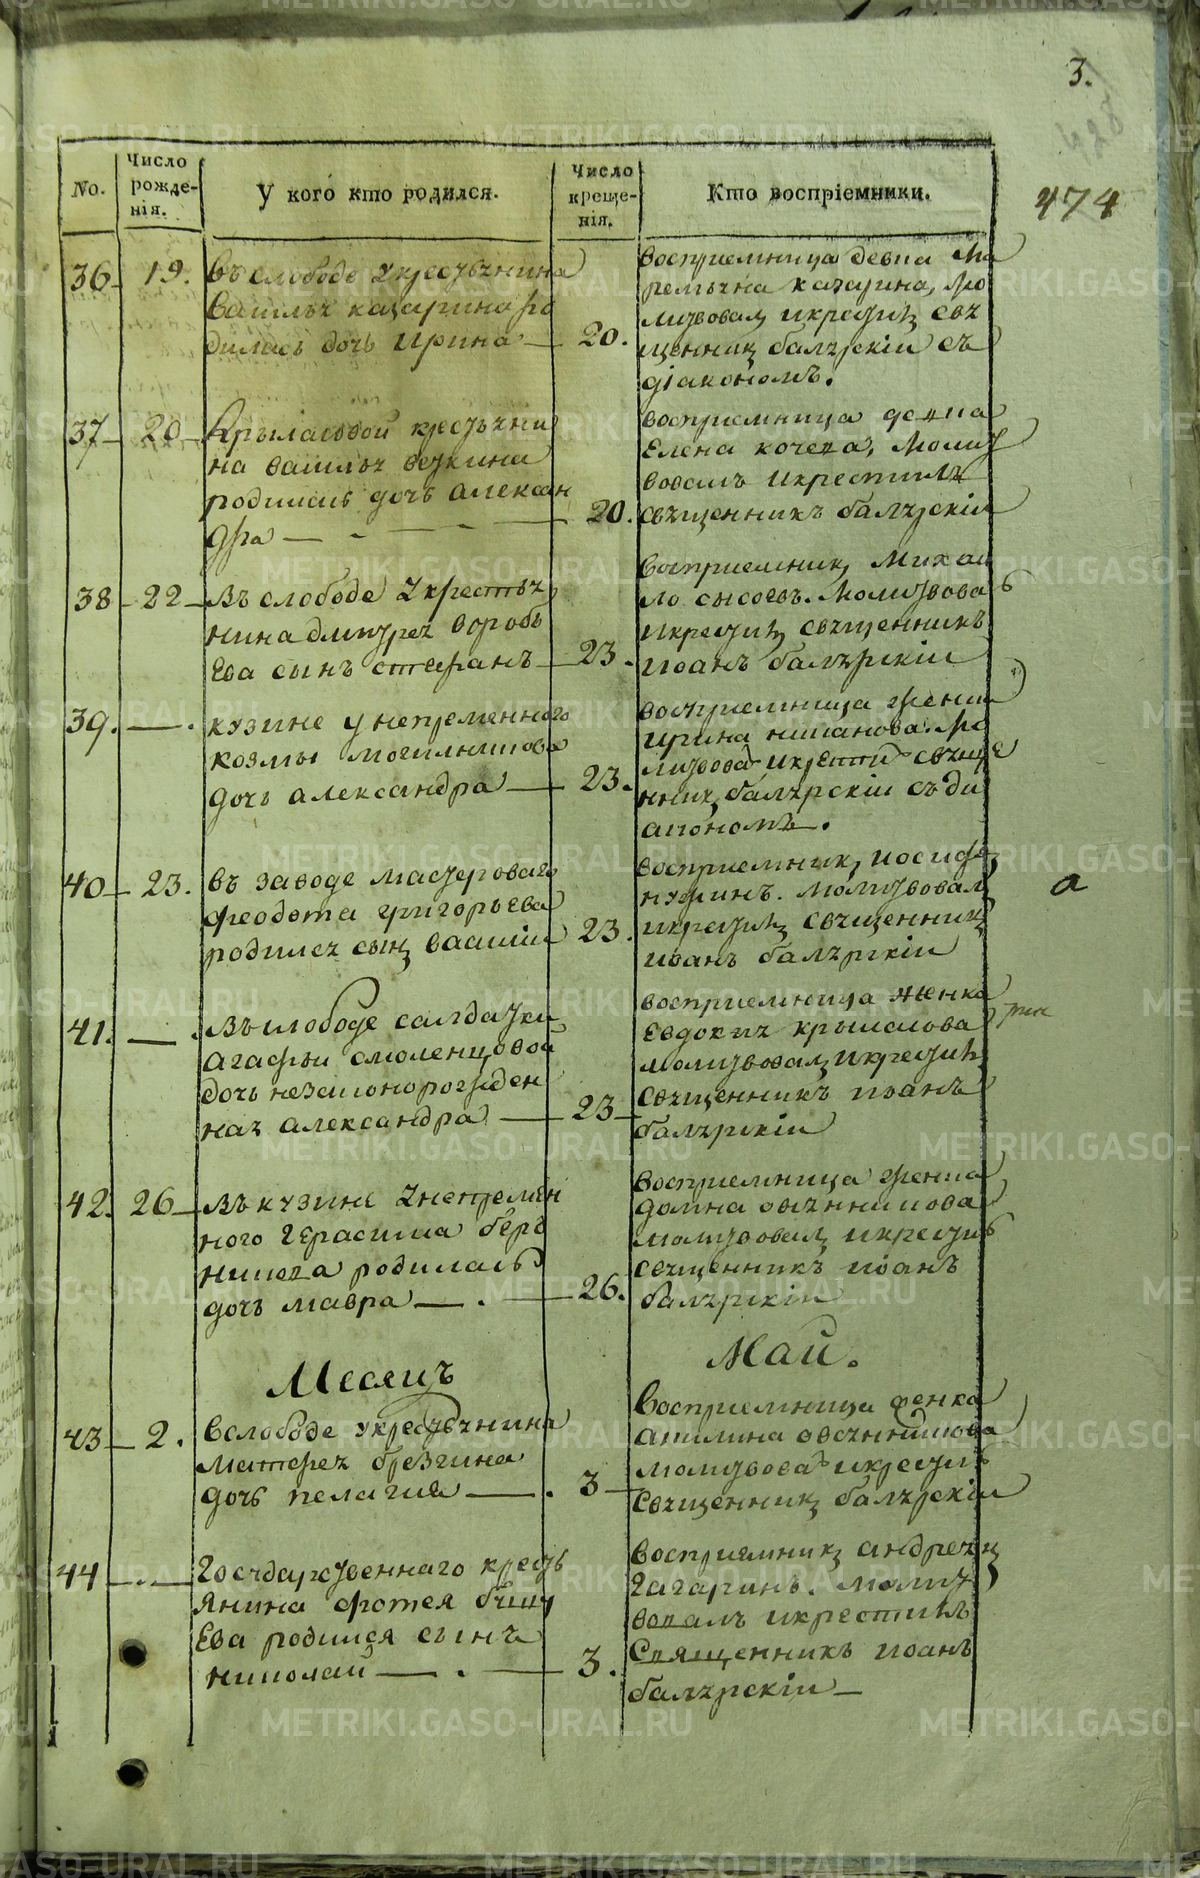 3.
474
No.
Число рожде-
нія.
У кого кто родился.
Число
креще-
нія.
Кто воспріемники.
36 19. Въ слободе укрестьянина
Василья казарина ро
дилась дочь Ирина — 20.
восприемница девка Ма
ремьяна казарина, Мо
литвовал и крестил свя
щенник балярскіи съ
діакономъ.
37 20 Крыласовой крестьяни
на василья веткина
родилась дочь алексан
дра — 20.
восприемница девка
Елена кочева, Молит
вовалъ икрестилъ
священникъ балярскіи
38 22 Въ слободе укрестья
нина дмитрея воробь
Ева сынъ стефанъ 23.
восприемник Михаи
ло сысоевъ. Молитвова
икрестил священникъ
иоанъ балярскіи
39. — кузине у непременнаго
козмы могильникова
дочь александра — 23.
восприемница женка
ирина
литвова икрести свяще
нник балярскіи съ ди
акономъ.
40 23. въ заводе мастероваго
феодота григорьева
родился сын василіи 23.
восприемник иосиф
молитвовал
икрестил священник
иоанъ балярскіи
а
41. — Въ слободе салдатки
агафьи смоленцовой
дочь незаконорожден
ная александра — 23
восприемница женка
Евдокия крыласова
молитвовал икрестил
священникъ иоанъ
балярскіи
42. 26 Въ кузине унепремен
ного герасима
родилась
дочь мавра — 26.
восприемница женка
домна овчинникова
молитвовал икрестил
священникъ иоанъ
балярскіи
Месяцъ Маи.
43 2. Вслободе укрестьянина
матфея брезгина
дочь пелагия — 3
восприемница женка
акилина овчинникова
молитвова икрестил
священник балярскіи
44 — Государственнаго кресть
янина фотея
Ева родился сынъ
николаи — 3.
восприемник андреян
гагаринъ. молит
вовалъ икрестилъ
Священникъ иоанъ
балярскіи —
METRIKI.GASO-URAL.RU